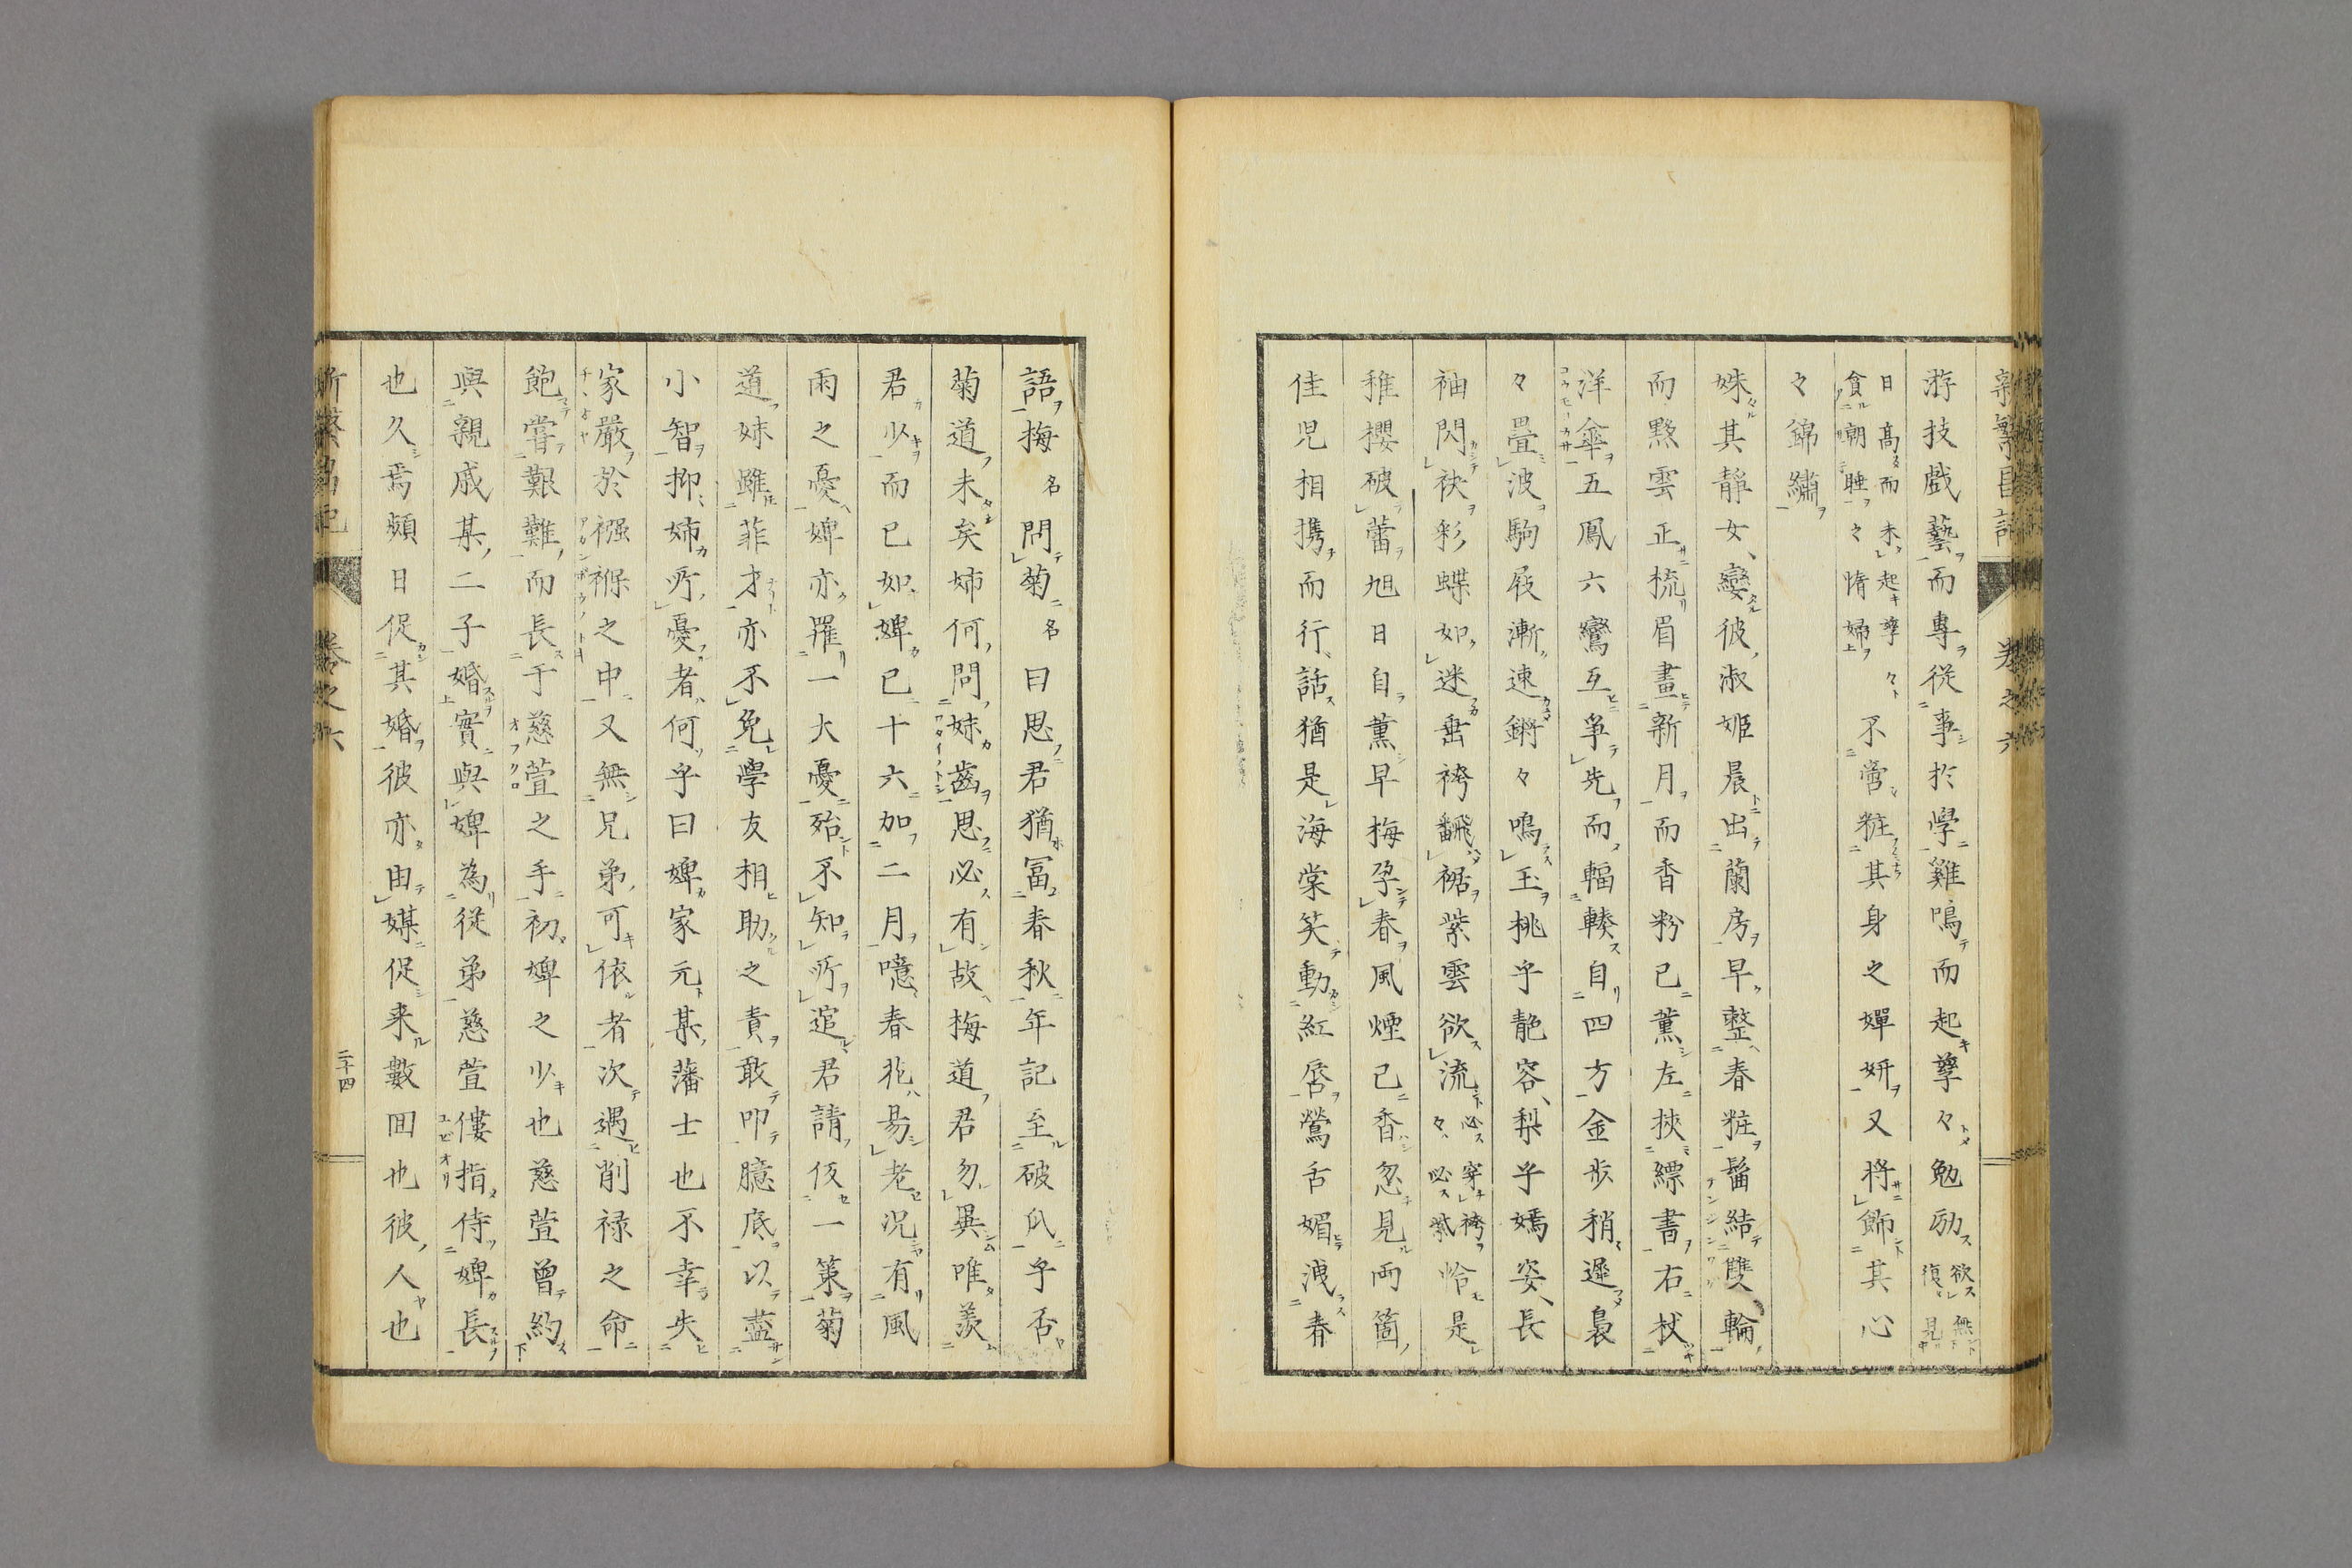 游技戲藝而專從事於學雞鳴而起孳々勉勵欲無復見
日高而未起孳々貪朝睡々惰婦不啻粧其身之嬋妍又將飾其心
之錦繡
姝其靜女、孌彼淑姬晨出蘭房早整春粧髷結雙輪
而黙雲正梳眉畫新月而香粉已薰左挾縹書右杖
洋傘五鳳六鸞互爭先而輻輳自四方金歩稍遲裊
々疊波駒屐漸速鏘々鳴玉桃乎靘容、梨乎嫣姿、長
袖閃袂彩蝶如迷垂袴飜裾紫雲欲流必穿袴々必紫恰是
稚櫻破蕾旭日自薰早梅孕春風煙已香忽見両箇
佳児相携而行、話猶是海棠笑動紅唇鶯舌媚洩春
語梅名問菊名曰思君猶冨春秋年記至破瓜乎否
菊道未矣姉何問妹齒思必有故梅道君勿異唯羨
君少而已如婢已十六加二月噫春非易老况有風
雨之憂婢亦罹一大憂殆不知所逭君請仮一策菊
道妹雖菲才亦不免學友相助之責敢叩臆底以盡
小智抑姉所憂者何乎曰婢家元某藩士也不幸失
家嚴於襁褓之中又無兄弟可依者次遇削禄之命
飽嘗艱難而長于慈萱之手初婢之少也慈萱曾約
與親戚某二子婚實與婢為從弟慈萱僂指侍婢長
也久焉頻日促其婚彼亦由媒促来數回也彼人也
卷之六
二十四